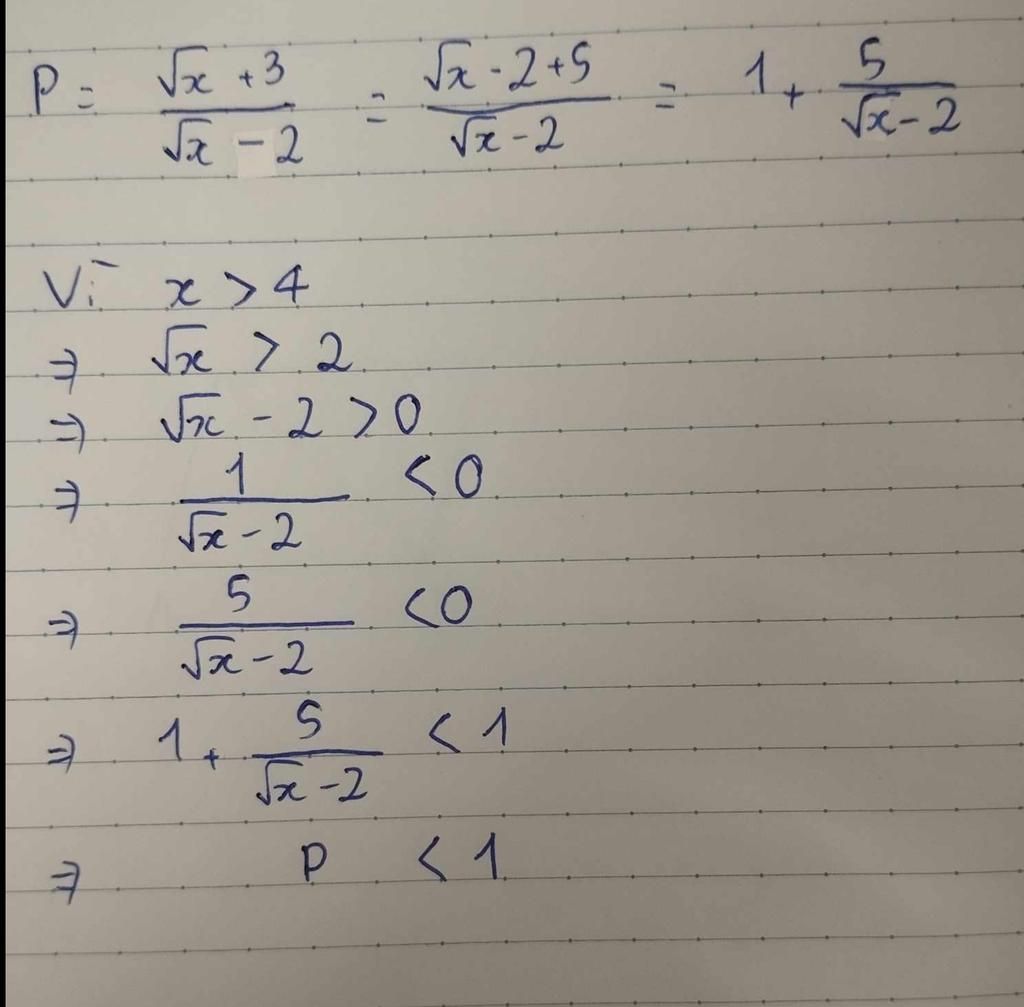 P = (√x + 3)/(√x - 2) = (√x - 2 + 5)/(√x - 2) = 1 + 5/(√x - 2)
Vì x > 4
⇒ √x > 2
⇒ √x - 2 > 0
⇒ 1/(√x - 2) < 0
⇒ 5/(√x - 2) < 0
⇒ 1 + 5/(√x - 2) < 1
⇒ P < 1